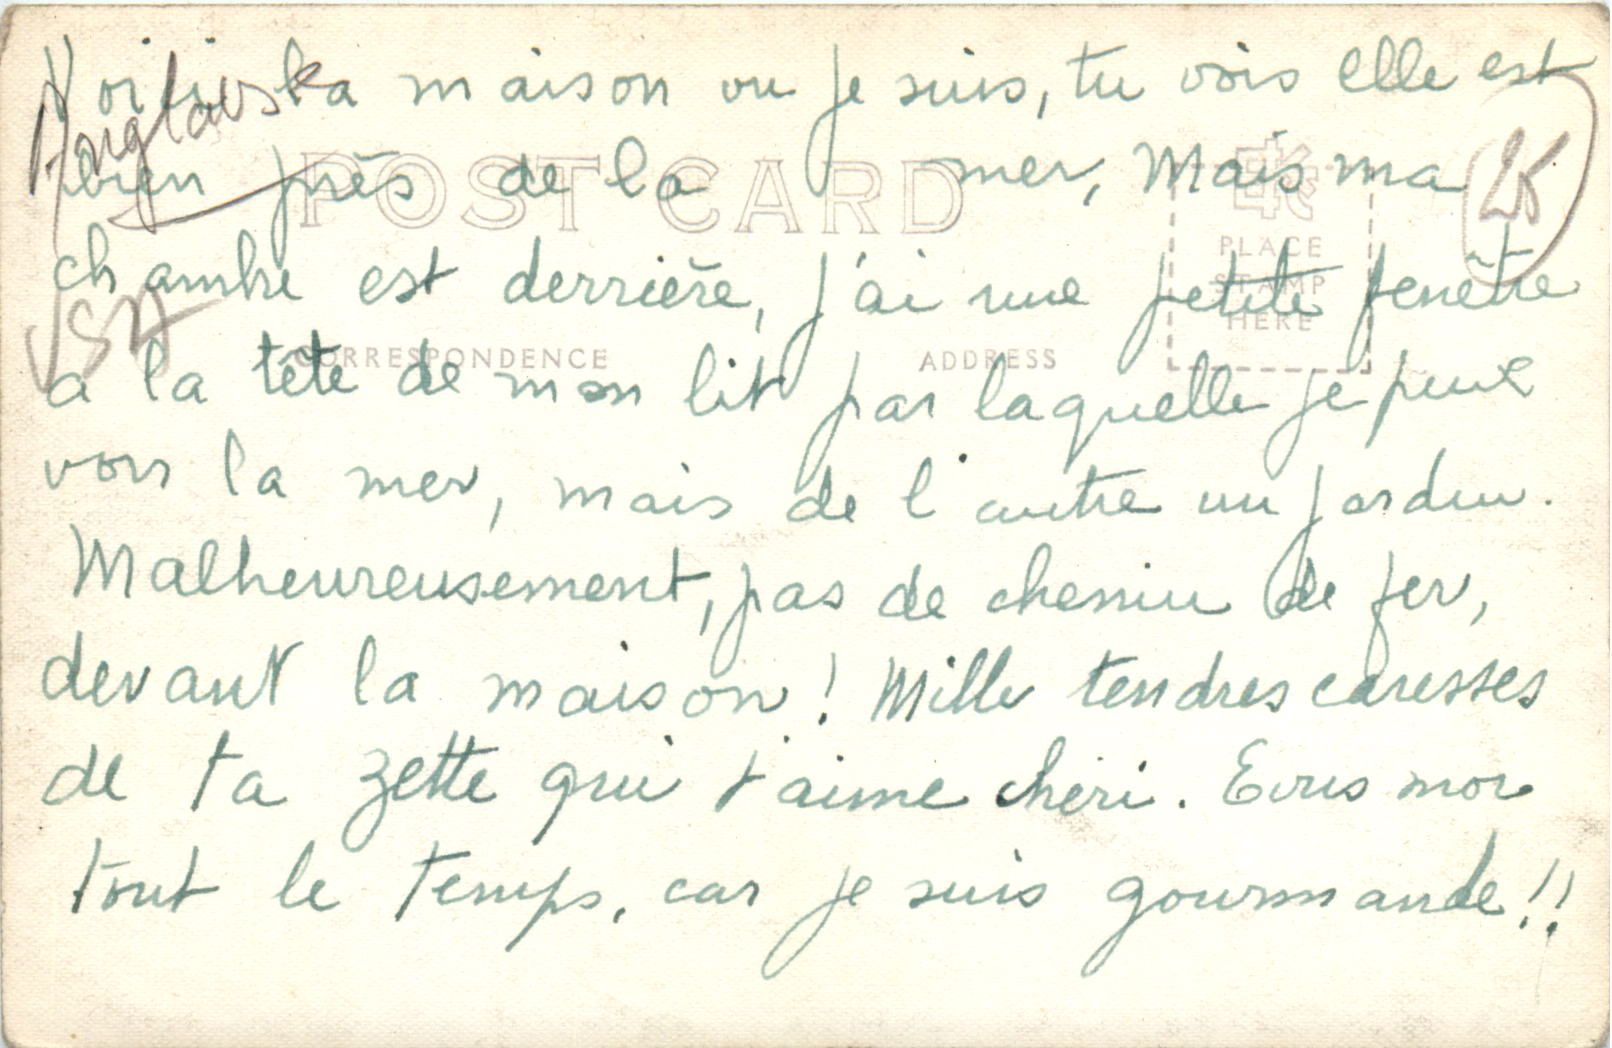 Voici la maison ou je suis, tu vois elle est
bien près de la mer, Mais ma
chambre est derrière, j'ai une petite fenêtre
a la tête de mon lit par laquelle je peux
voir la mer, mais de l'autre un jardin.
Malheureusement, pas de chemin de fer,
devant la maison! Mille tendres caresses
de ta Zette qui t'aime chéri. Ecris moi
tout le temps, car je suis gourmande!!
USA
25
POST CARD
PLACE
STAMP
HERE
CORRESPONDENCE
ADDRESS